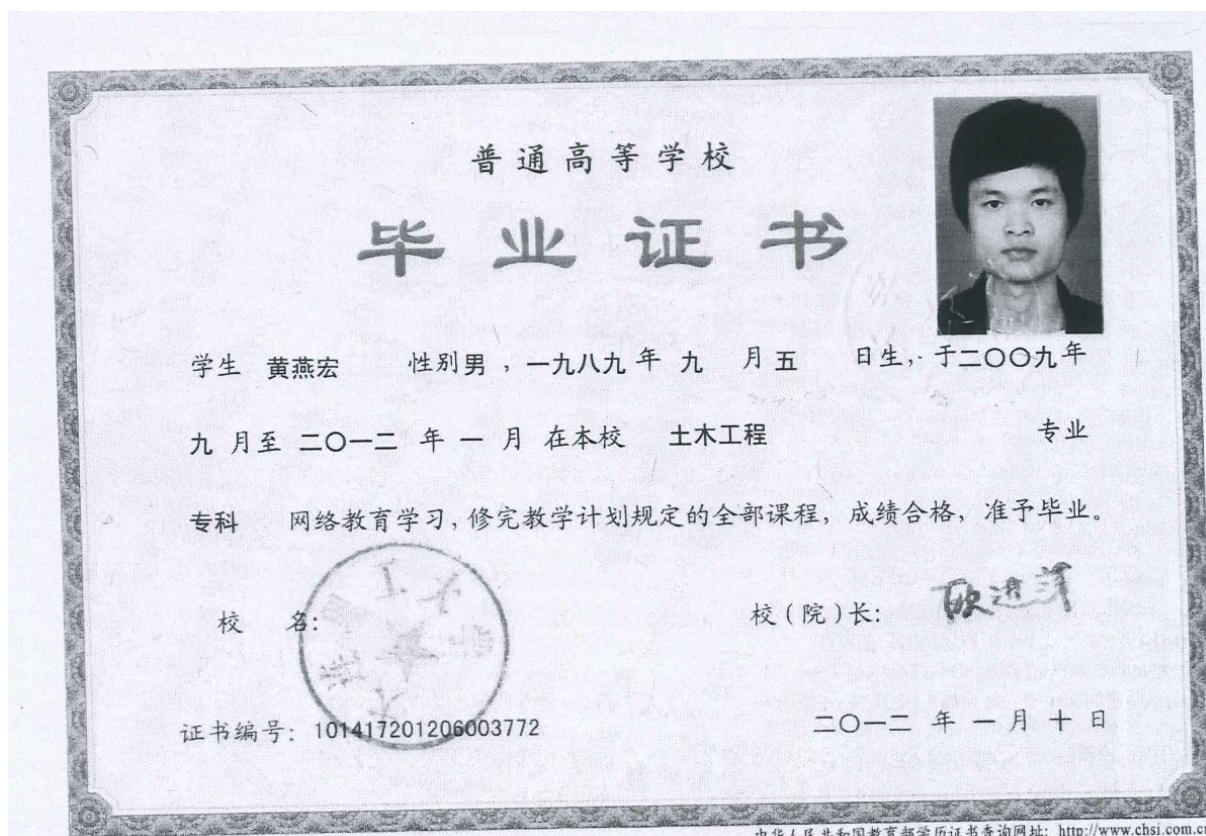 普通高等学校
毕业证书
学生 黄燕宏 性别男，一九八九年 九 月五 日生，于二〇〇九年
九 月至 二〇一二 年 一 月 在本校 土木工程 专业
专科 网络教育学习，修完教学计划规定的全部课程，成绩合格，准予毕业。
校 名： 校（院）长：
证书编号：101417201206003772 二〇一二 年 一 月 十 日
中华人民共和国教育部学历证书查询网址：http://www.chsi.com.cn